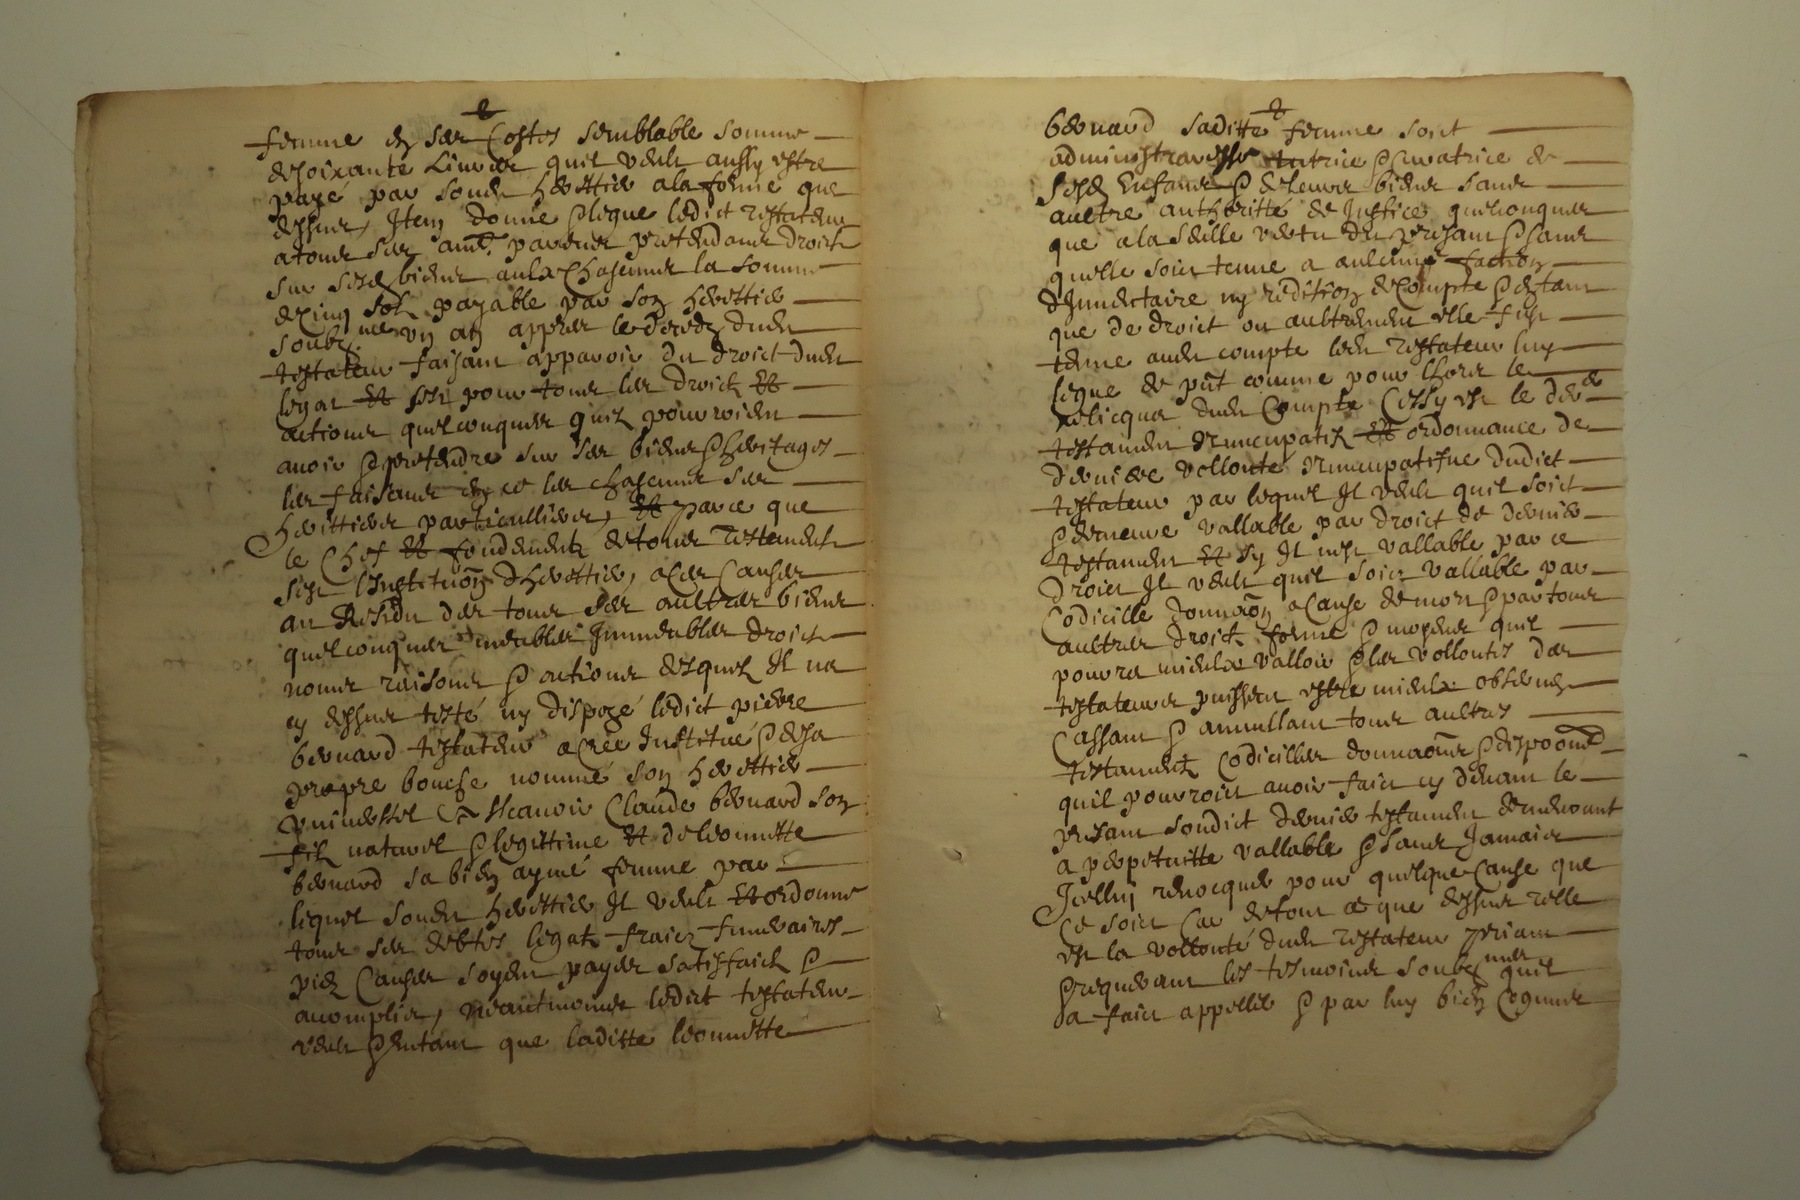 femme en ses Costes semblable somme
de soixante Livres quil veult aussy estre
payé par sondt heritier a la forme que
dessus, Item donne & legue ledict testateur
a tous ses aultres parens pretendans droict
sur sesd biens aulx Chascuns la somme
de cinq solz payable par son heritier
soubz nommé un an appres le deces dudt
testateur faisant apparoir du droict dudt
legat Et sest pour tous les droictz Et
actions quelconques quilz pourroient
avoir & pretendre sur ses biens & heritages
les faisant en ce les chascuns ses
heritiers particulliers, Et parce que
le Chef Et fondement de tous testements
sest linstitution dheritier, a ces Causes
au Residu des tous ses aultres biens
quelconques meubles Immeubles droictz
noms raisons & actions desquelz Il na
cy dessus testé ny dispozé ledict pierre
bernard testateur a crée Institué & de sa
propre bouche nommé son heritier
universel a scavoir Claude bernard son
filz naturel & legittime Et de leonnette
bernard sa bien aymé femme par
lequel sondt heritier Il veult Et ordonne
tous ses debtes legatz fraiz funeraires
piez Causes soyent payes satisfaictz &
acomplies, neantmoings ledict testateur
veult & entant que laditte leonnette
bernard saditte femme soit
administraresse tutrice & curatrice de
sesd Enfans & de leurs biens sans
aultre authoritté de Justice quelconques
que a la seulle vertu du present & sans
quelle soict tenue a aulcune faction
dInventaire ny reddition de Compte & en tant
que de droict ou aultrement elle fust
tenue audt compte ledt testateur luy
legue de pnt comme pour lhors le
relicqua dudt Compte Cessy est le der
testament nuncupatif Et ordonnance de
derniere vollonte nuncupatifve dudict
testateur par lequel Il veult quil soict
& demeure vallable par droict de dernier
testament Et sy Il nest vallable par ce
droict Il veult quil soict vallable par
Codicille donnaon a Cause de mort & par tous
aultres droictz forme & moyens quil
pourra mieulx valloir & les vollontes des
testateurs puissent estre mieulx observes
Cassant & annullant tous aultres
testamentz Codicilles donnaons & dispoons
quil pourroict avoir faict cy devant le
present sondict dernier testament demeurant
a perpetuitte vallable & sans Jamais
Icelluy revocquer pour quelque Cause que
ce soict Car de tout ce que dessus telle
est la vollonté dudt testateur priant
& requerant les tesmoins soubz nmes quil
a faict appeller & par luy bien Cogneus